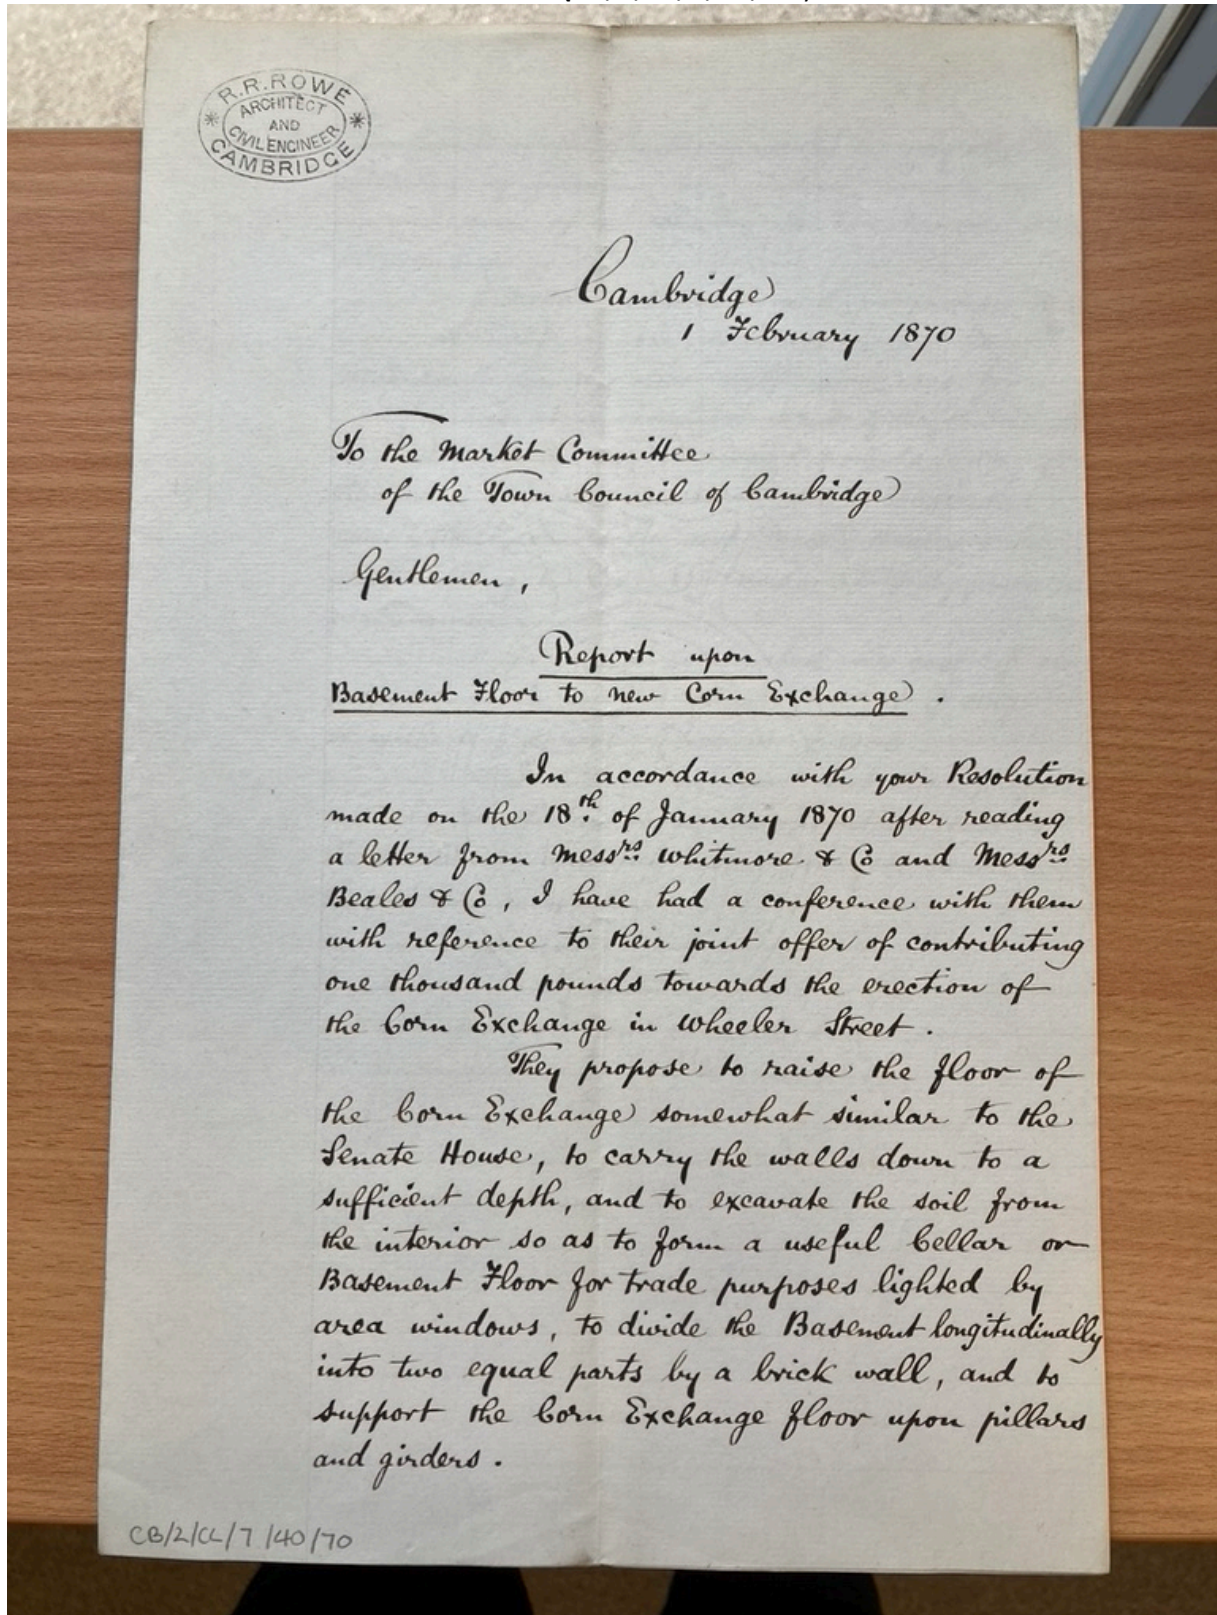 R.R. ROWE
ARCHITECT
AND
CIVIL ENGINEER
CAMBRIDGE
Cambridge
1 February 1870
To the Market Committee
of the Town Council of Cambridge
Gentlemen,
Report upon
Basement Floor to new Corn Exchange.
In accordance with your Resolution
made on the 18th of January 1870 after reading
a letter from Messrs Whitmore & Co and Messrs
Beales & Co, I have had a conference with them
with reference to their joint offer of contributing
one thousand pounds towards the erection of
the Corn Exchange in Wheeler Street.
They propose to raise the floor of
the Corn Exchange somewhat similar to the
Senate House, to carry the walls down to a
sufficient depth, and to excavate the soil from
the interior so as to form a useful Cellar or
Basement Floor for trade purposes lighted by
area windows, to divide the Basement longitudinally
into two equal parts by a brick wall, and to
support the Corn Exchange floor upon pillars
and girders.
CB/2/CL/7/40/70